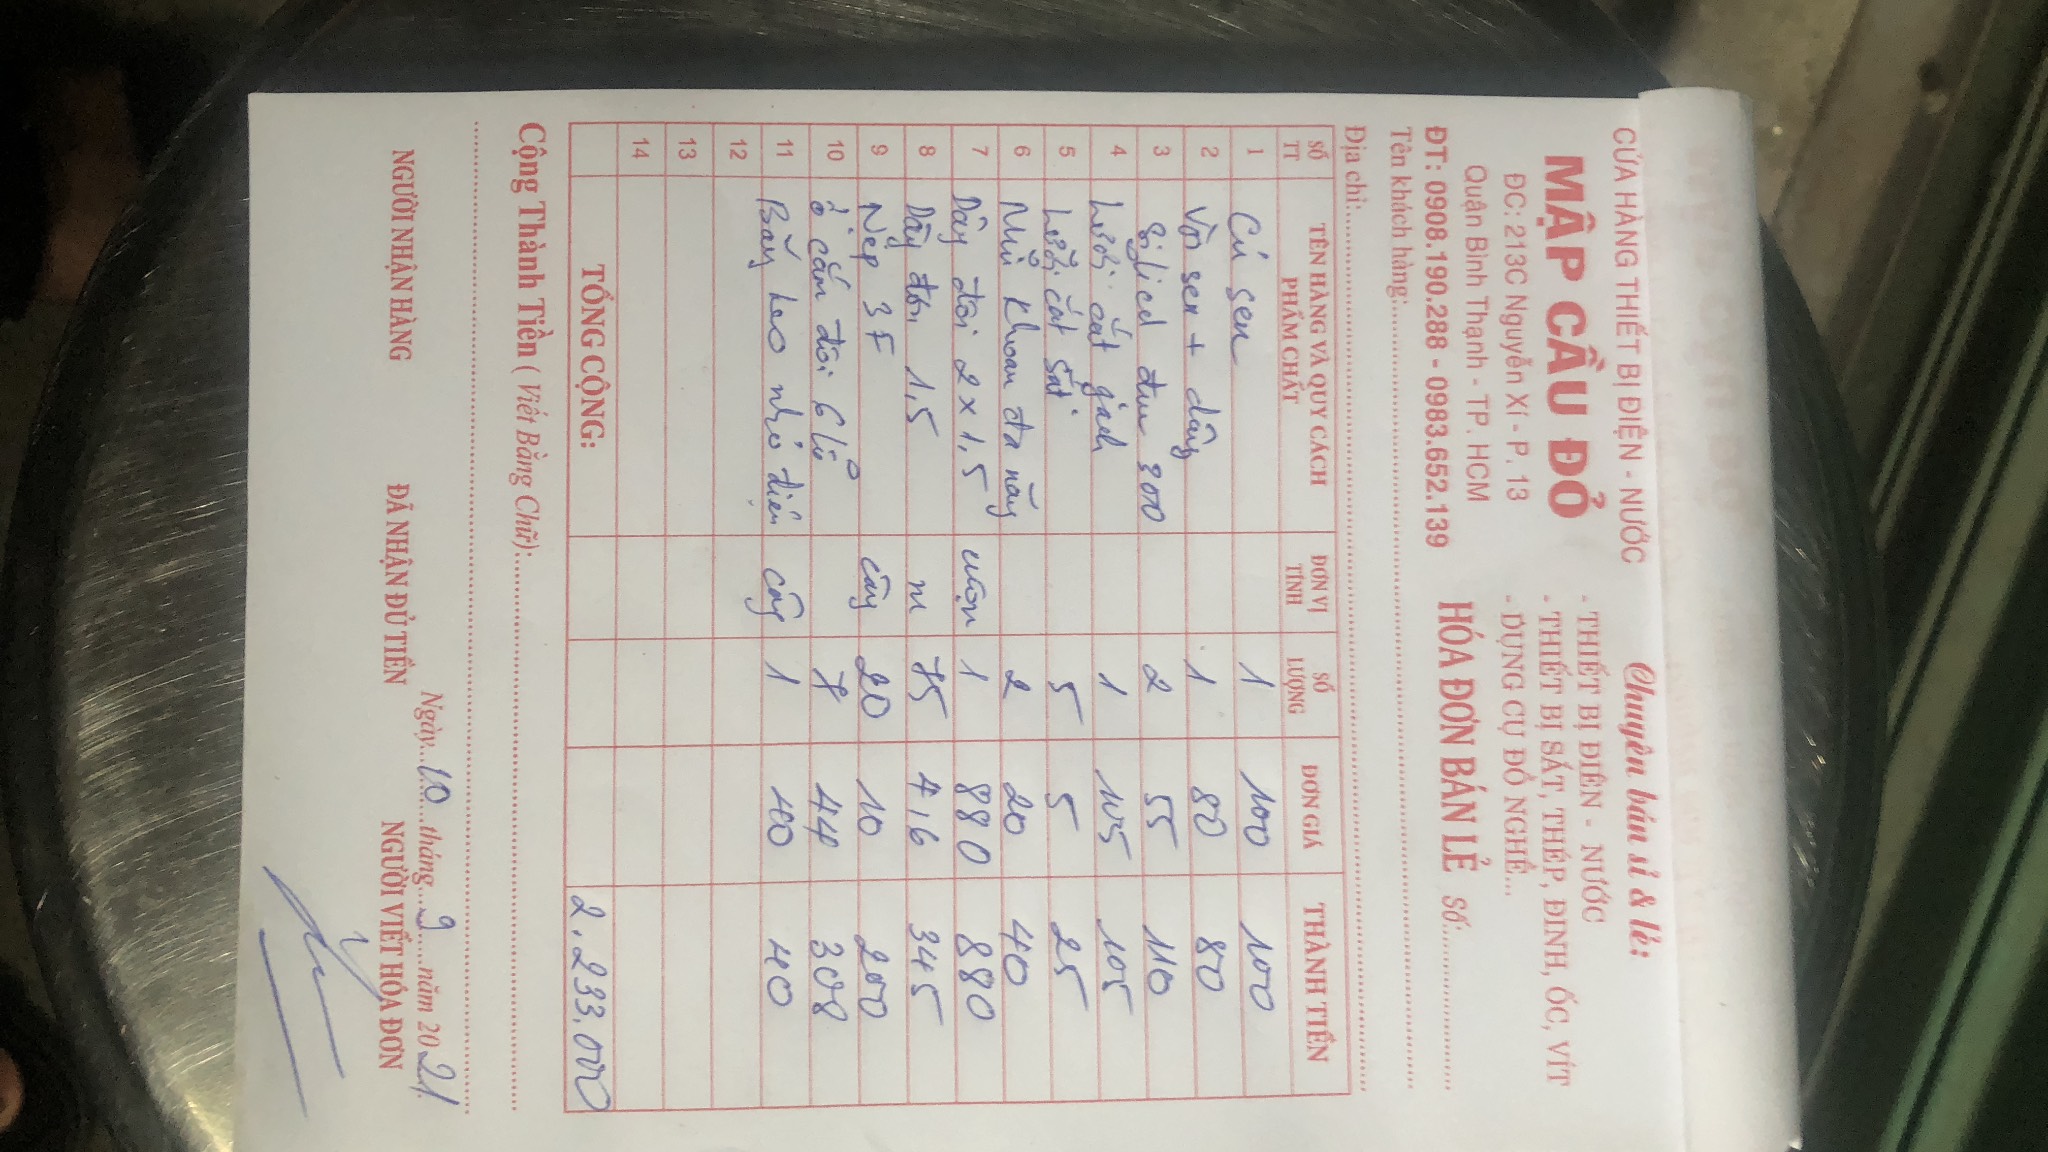 CỬA HÀNG THIẾT BỊ ĐIỆN - NƯỚC
MẬP CẦU ĐỎ
ĐC: 213C Nguyễn Xí - P. 13
Quận Bình Thạnh - TP. HCM
ĐT: 0908.190.288 - 0983.652.139
Chuyên bán sỉ & lẻ:
- THIẾT BỊ ĐIỆN - NƯỚC
- THIẾT BỊ SẮT, THÉP, ĐINH, ỐC, VÍT
- DỤNG CỤ ĐỒ NGHỀ...
HÓA ĐƠN BÁN LẺ Số:
Tên khách hàng:
Địa chỉ:
SỐ TT TÊN HÀNG VÀ QUY CÁCH PHẨM CHẤT ĐƠN VỊ TÍNH SỐ LƯỢNG ĐƠN GIÁ THÀNH TIỀN
1 Củ sen 1 100 100
2 Vòi sen + dây 1 80 80
3 đen 300 2 55 110
4 Lưỡi cắt gạch 1 105 105
5 Lưỡi cắt sắt 5 5 25
6 Mũi khoan đa năng 2 20 40
7 Dây đôi 2 x 1,5 cuộn 1 880 880
8 Dây đơn 1,5 m 75 4 16 345
9 Nẹp 3F cây 20 10 200
10 ổ cắm đôi 6 lỗ 7 44 308
11 Băng keo nhỏ điện cây 1 40 40
12
13
14
TỔNG CỘNG: 2.233.000
Cộng Thành Tiền ( Viết Bằng Chữ):
Ngày 10 tháng 9 năm 2021
NGƯỜI NHẬN HÀNG ĐÃ NHẬN ĐỦ TIỀN NGƯỜI VIẾT HÓA ĐƠN